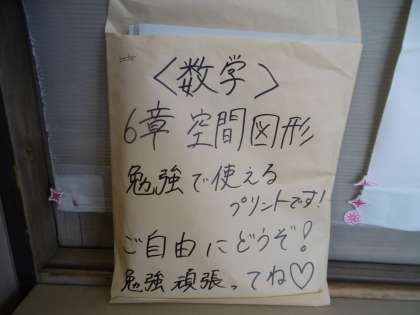 〈数学〉
6章 空間図形
勉強で使える
プリントです!
ご自由にどうぞ!
勉強頑張ってね♡